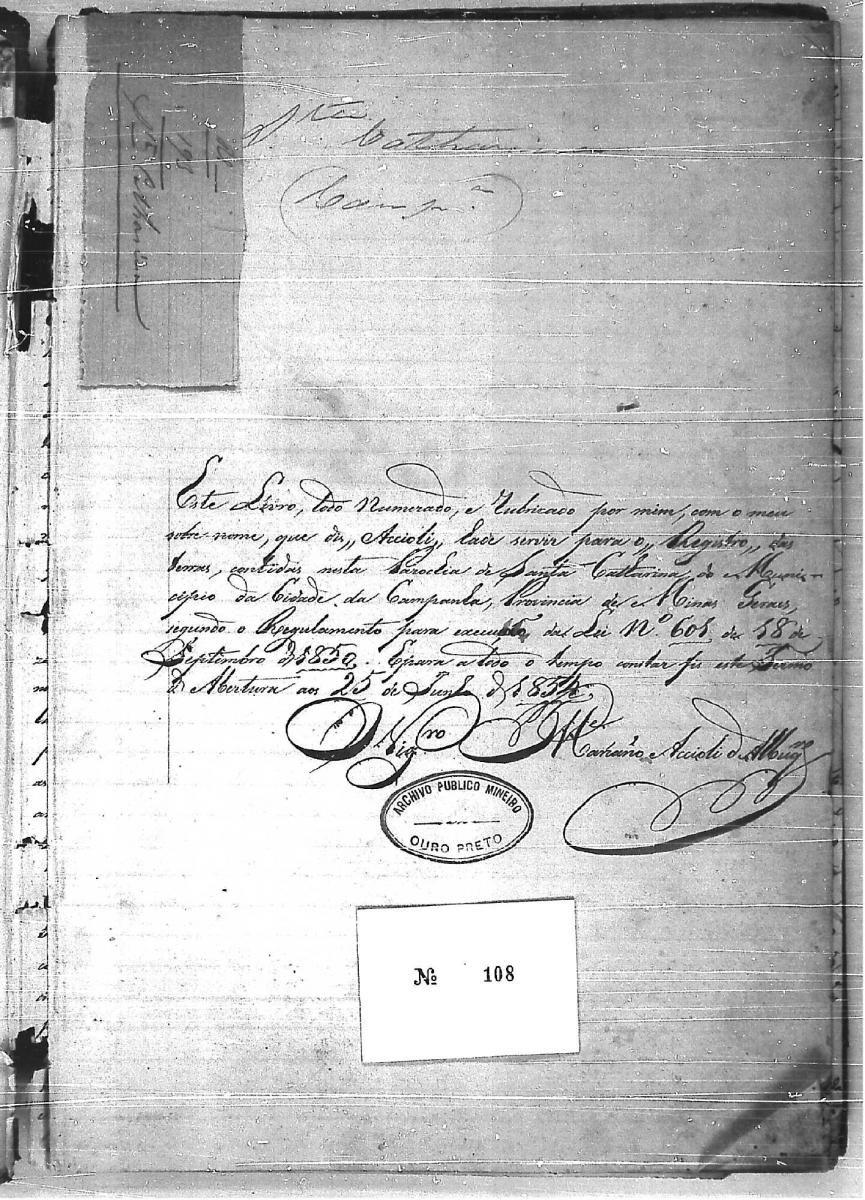 Sta. Catharina
(Camp.a)
Este Livro, todo Numerado, e Rubricado por mim, com o meu
sobre-nome, que diz,, Accioli,, hade servir para o,, Registro,, das
terras, contidas nesta Parochia de Santa Catharina, do Muni-
cipio da Cidade da Campanha, Provincia de Minas Geraes,
segundo o Regulamento para execução da Lei Nº 601 de 18 de
Septembro de 1850. Epara a todo o tempo constar fis este Termo
d'Abertura aos 25 de Junho de 1854.
O Vigro Pe. Mariano Accioli d'Albuqne
ARCHIVO PUBLICO MINEIRO
OURO PRETO
Nº 108